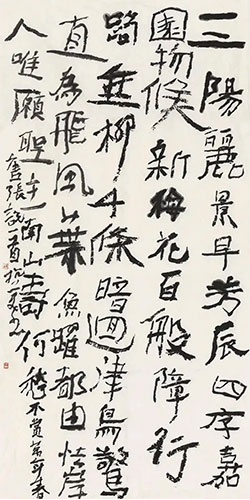 三陽麗景早芳辰四序嘉
園物候新梅花百般障行
路垂柳千條暗迴津鳥驚
直為飛風葉魚躍都由怯岸
人唯願聖主南山壽何愁不賞萬年春
張說